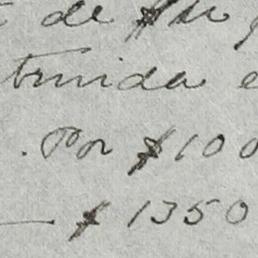 de $
truida e
. Por $100
— $1350